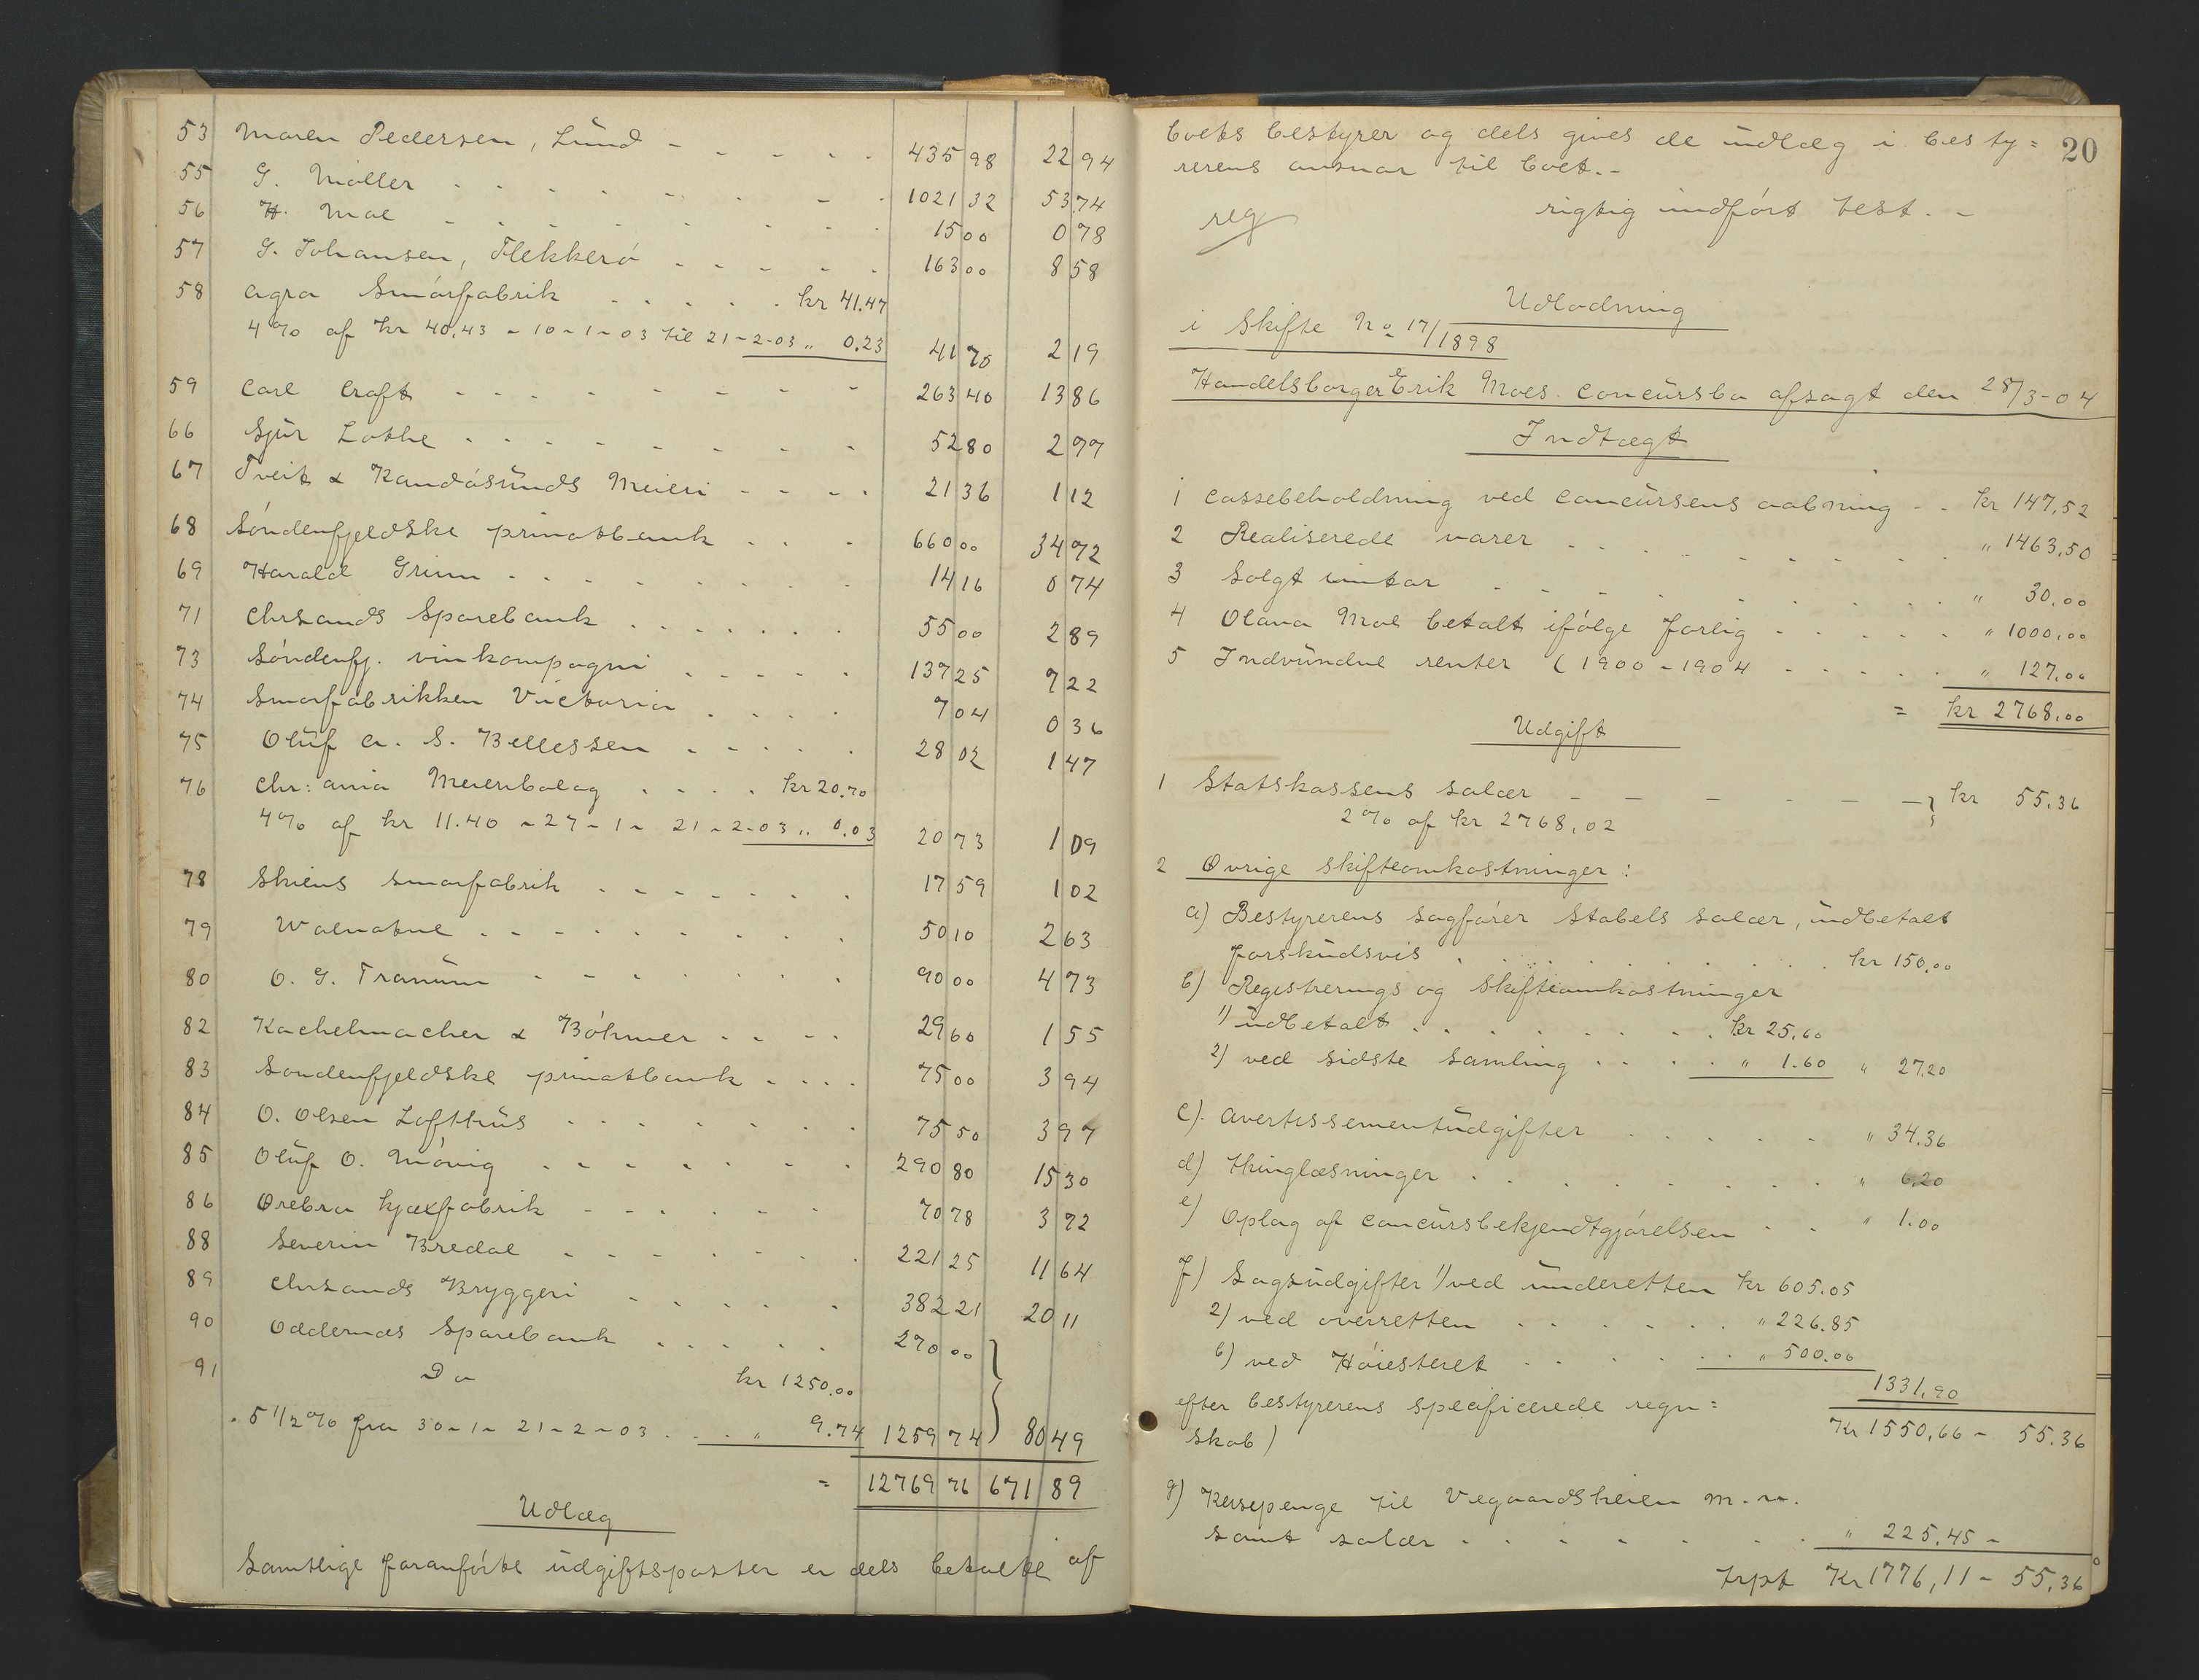 53 Maren Pedersen, Lund - - - - - 435 98 22 94
55 G. Møller - - - - - - - 1021 32 53.74
56 H. Moe - - - - - - - 15 00 0 78
57 G. Johansen, Flekkerö - - - - - 163 00 8 58
58 Agra Smørfabrik - - - - - kr 41.47
4% af kr 40,43 - 10-1-03 til 21-2-03 „ 0.23 41 70 2 19
59 Carl Craft - - - - - - - 263 40 13 86
66 Sjur Lothe - - - - - - - 52 80 2 77
67 Tveit & Randøsunds Meieri - - - - 21 36 1 12
68 Søndenfjeldske privatbank - - - 660 00 34 72
69 Harald Grim - - - - - - - 14 16 0 74
71 Chrsands Sparebank - - - - - - 55 00 2 89
73 Søndenfj. vinkompagni - - - - - 137 25 7 22
74 Smørfabrikken Victoria - - - - 7 04 0 36
75 Oluf A. S. Bellessen - - - - - 28 02 1 47
76 Chr:ania Meieribolag - - - - kr 20.70
4% af kr 11.40 - 27-1- 21-2-03 „ 0.03 20 73 1 09
78 Skiens smørfabrik - - - - - - 17 59 1 02
79 Walnatne - - - - - - - - 50 10 2 63
80 O. G. Tranum - - - - - - - 90 00 4 73
82 Kachelmacher & Böhmer - - - - 29 60 1 55
83 Søndenfjeldske privatbank - - - - 75 00 3 94
84 O. Olsen Lofthus - - - - - - - 75 50 3 97
85 Oluf O. Møvig - - - - - - - 290 80 15 30
86 Orebro kjæxfabrik - - - - - - 70 78 3 72
88 Severin Bredal - - - - - - - 221 25 11 64
89 Chrsands Bryggeri - - - - - 382 21 20 11
90 Oddernes Sparebank - - - - - 270 00
91 Do kr 1250.00
. 5 1/2% fra 30-1- 21-2-03 . . . „ 9.74 1259 74 80 49
= 12769 76 671 89
Udlæg
Samtlige foranførte udgiftsposter er dels betalte af
20
boets bestyrer og dels gives de udlæg i besty=
rerens ansvar til boet.-
rigtig indført test. -
reg
Udlodning
i Skifte No 17/1898
Handelsborger Erik Moes concursbo afsagt den 28/3-04
Indtægt
1 Cassebeholdning ved concursens aabning - - kr 147,52
2 Realiserede varer - - - - - - - - „ 1463,50
3 Solgt inntar - - - - - - - - - „ 30.00
4 Olava Moe betalt ifølge forlig - - - - - „ 1000,00
5 Indvundne renter (1900-1904 - - - - - „ 127,00
= kr 2768,00
Udgift
1 Statskassens salær - - - - - - } kr 55.36
2% af kr 2768,02
2 Øvrige skifteomkostninger :
a) Bestyrerens sagfører Stabels salær, indbetalt
forskudsvis . . . . . . . . . kr 150,00
b) Registrerings og Skifteomkostninger
1) udbetalt . . . . . . . . kr 25,60
2) ved sidste samling . . . . „ 1.60 „ 27,20
c). Avertissementudgifter . . . . . „ 34.36
d) Thinglæsninger . . . . . . . . „ 6,20
e) Oplag af concursbekjendtgjørelsen - - „ 1.00
f) Sagsudgifter 1) ved underetten kr 605.05
2) ved overretten . . . . . . „ 226.85
6) ved Høiesteret . . . . . . „ 500.00
1331,90
efter bestyrerens specificerede regn= Kr 1550,66 - 55.36
skab)
g) Reisepenge til Vegaardsheien m. v.
samt salær . . . . . . . . „ 225,45 -
trpt Kr 1776,11 - 55,36